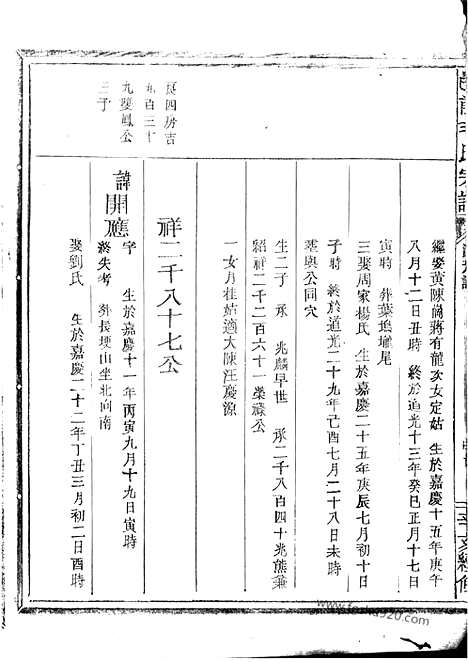 繼娶黃陳崗蔣有龍次女定姑 生於嘉慶十五年庚午
八月十二日丑時 終於道光十三年癸巳正月十七日
寅時 葬葉塢壠尾
三娶周家楊氏 生於嘉慶二十五年庚辰七月初十日
子時 終於道光二十九年己酉七月二十八日未時
葬與公同穴
生二子 承 兆麟早世 承二千八百四十兆熊兼
紹祥二千二百六十一榮祿公
一女月桂姑適大陳汪慶源
祥二千八十七公
長四房吉
九百三十
九榮鳳公
三子
諱開應
字 生於嘉慶十一年丙寅九月十九日寅時
終失考 葬長埂山坐北向南
娶劉氏 生於嘉慶二十二年丁丑三月初二日酉時
氏宗譜
辛亥續修